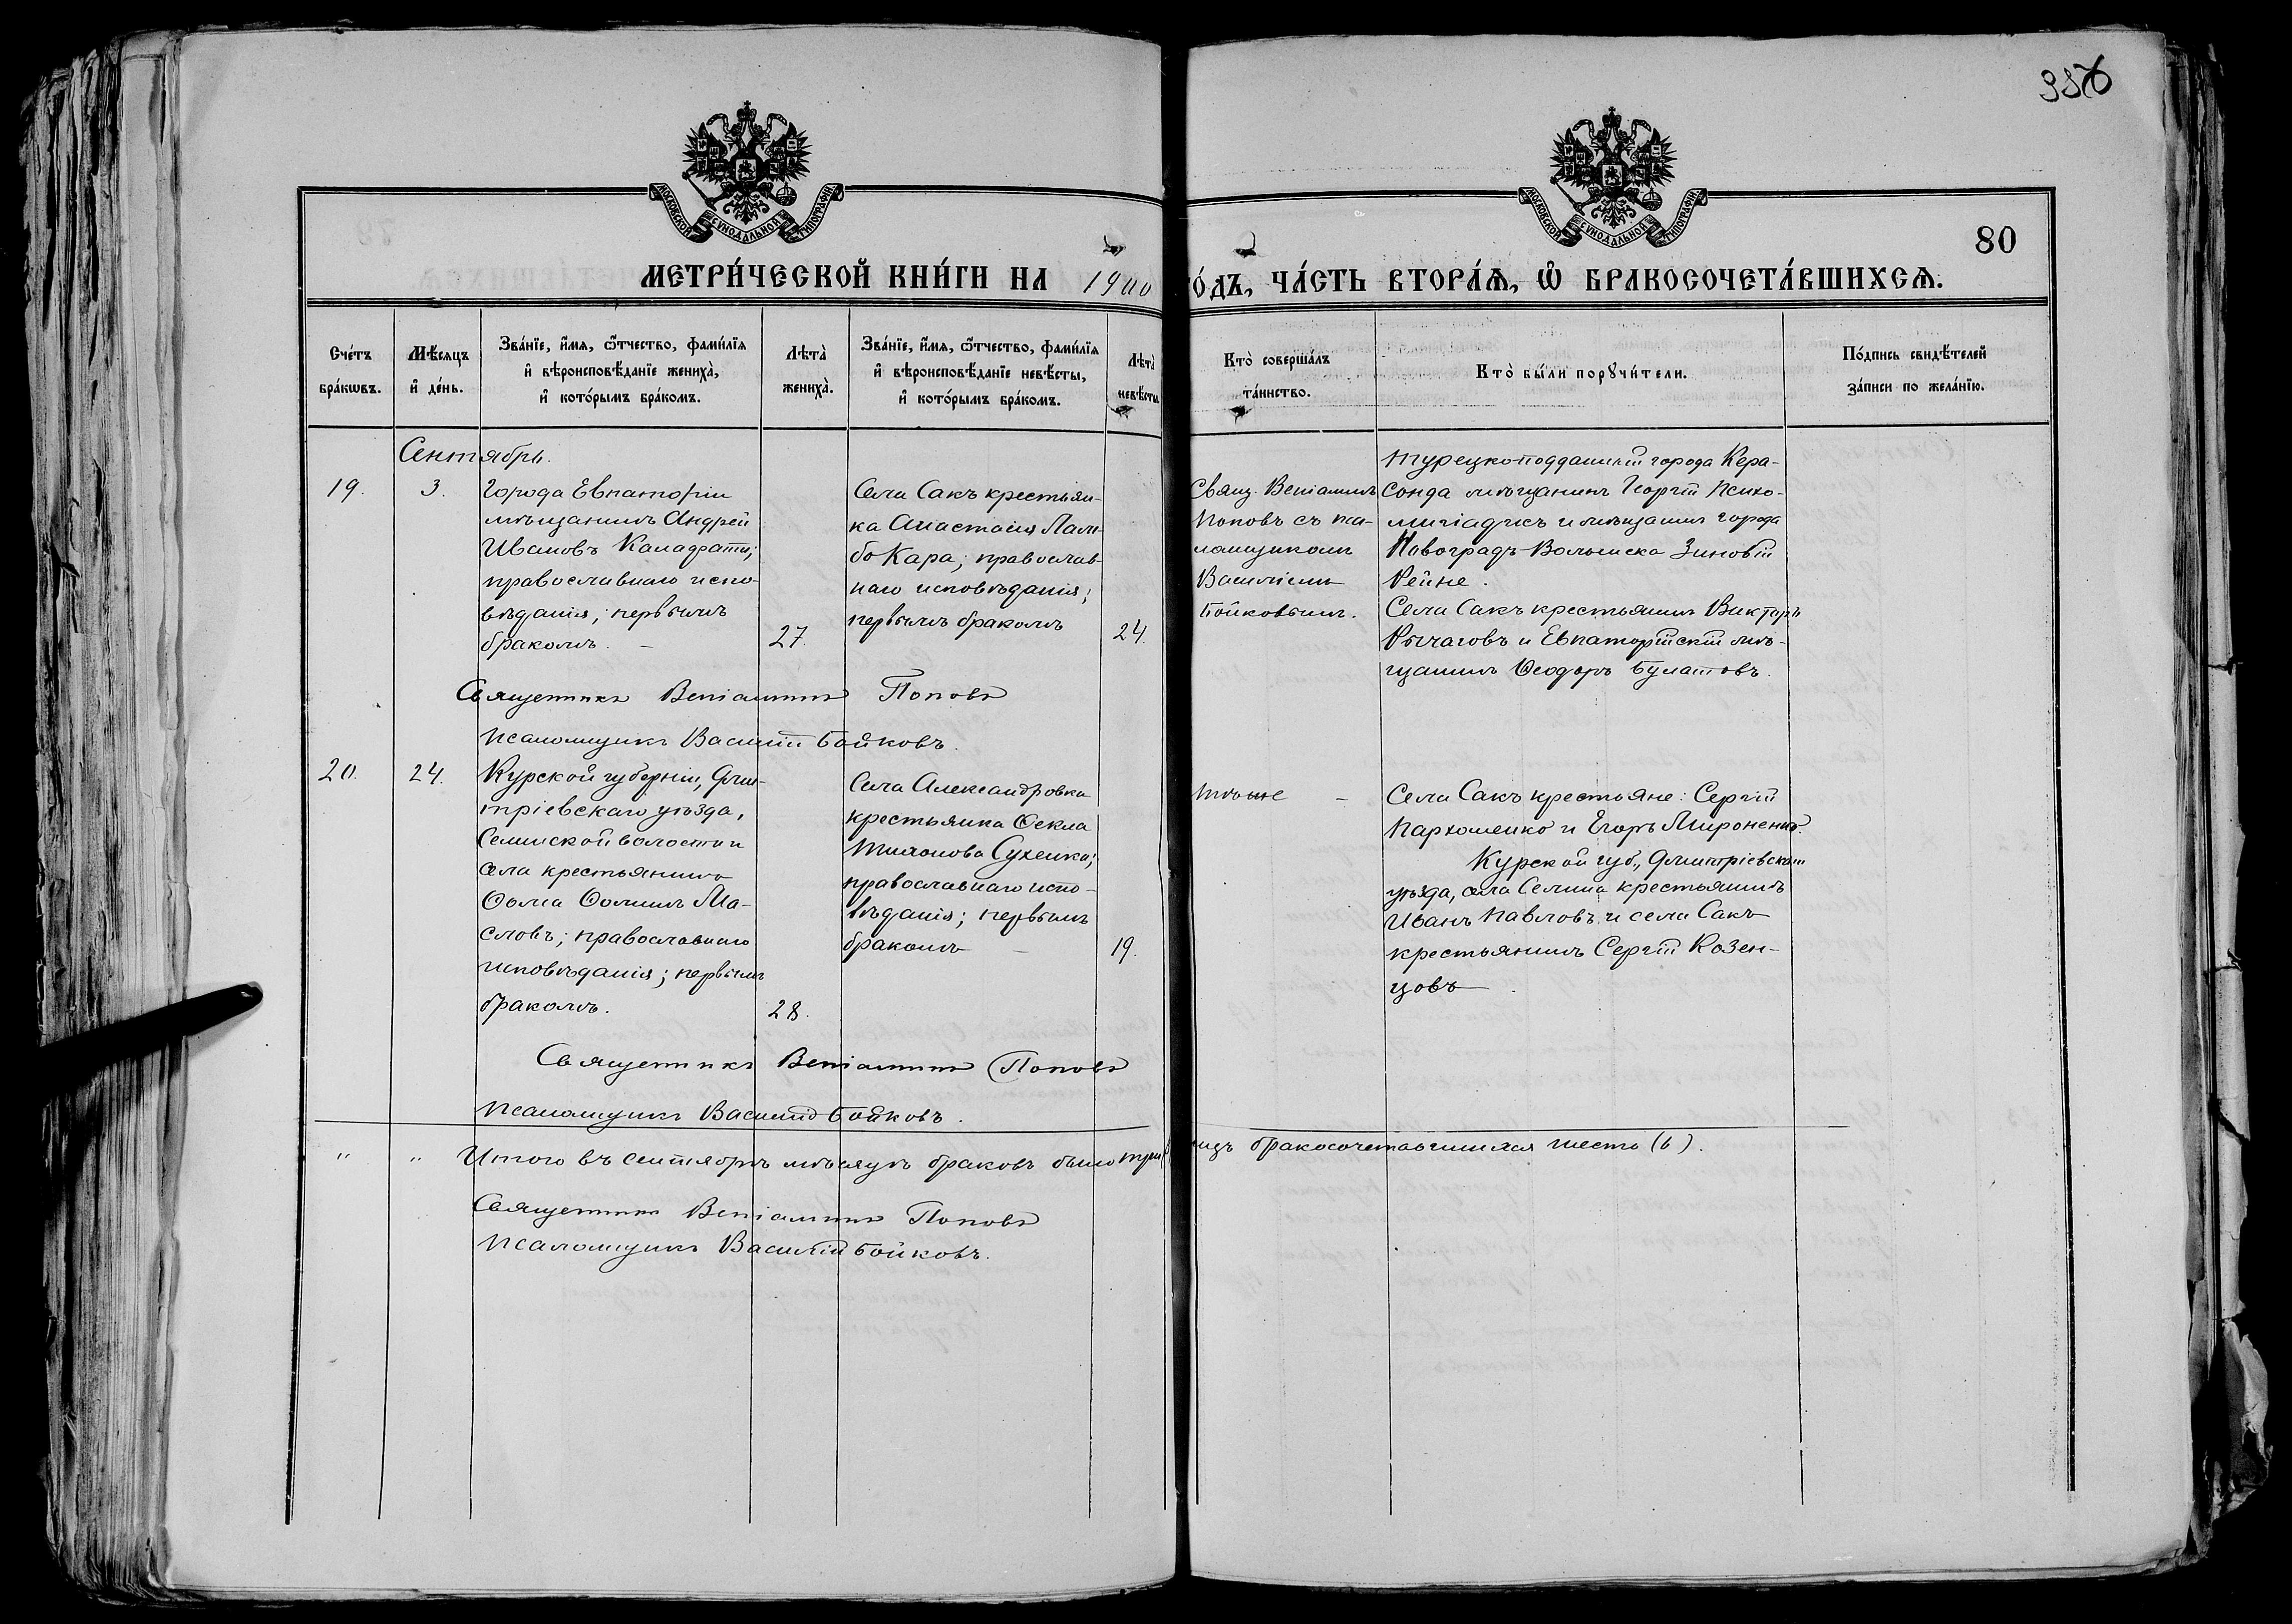 336
МОСКОВСКОЙ СУНОДАЛЬНОЙ ТИПОГРАФІИ
МОСКОВСКОЙ СУНОДАЛЬНОЙ ТИПОГРАФІИ
80
МЕТРИ́ЧЕСКОЙ КНИ́ГИ НА 1900
О́ДЪ, ЧА́СТЬ ВТОРА́Ѧ, Ѽ БРАКОСОЧЕТА́ВШИХСѦ.
Сче́тъ
бра́кѡвъ.
Мѣ́сяцъ
и҆ де́нь.
Зва́нїе, и҆́мя, ѻ҆́тчество, фами́лїя
и҆ вѣроисповѣ́данїе женихà,
и҆ кото́рымъ бра́комъ.
Лѣтà
женихà.
Зва́нїе, и҆́мя, ѻ҆́тчество, фами́лїя
и҆ вѣроисповѣ́данїе невѣ́сты,
и҆ кото́рымъ бра́комъ.
Лѣтà
невѣ́сты.
Кто̀ соверша́лъ
та́инство.
Кто̀ бы́ли порꙋчи́тели.
По́дпись свидѣ́телей
за́писи по жела́нїю.
Сентябрь.
19.
3.
Города Евпаторіи
мѣщанинъ Андрей
Ивановъ Каладрати;
православнаго испо-
вѣданія; первымъ
бракомъ.
27.
Села Сакъ крестьян-
ка Анастасія Лам-
бо Кара; православ-
наго исповѣданія;
первымъ бракомъ
24.
Свящ. Веніаминъ
Поповъ съ пса-
ломщикомъ
Василіемъ
Бойковымъ.
Турецкоподданный города Кера-
сонда мѣщанинъ Георгій Психо-
миліадисъ и мѣщанин города
Новоградъ-Волынска Зиновій
Рейне.
Села Сакъ крестьянин Викторъ
Рычаговъ и Евпаторійскій мѣ-
щанинъ Ѳеодоръ Булатовъ.
Священникъ Веніаминъ Поповъ
Псаломщикъ Василій Бойковъ.
20.
24.
Курской губерніи, Дми-
тріевскаго уѣзда,
Селинской волости и
села крестьянинъ
Ѳома Ѳоминъ Ма-
словъ; православнаго
исповѣданія; первымъ
бракомъ.
28.
Села Александровка
крестьянка Ѳекла
Тихонова Сухенко;
православнаго испо-
вѣданія; первымъ
бракомъ
19.
Тѣ же
Села Сакъ крестьяне: Сергій
Пархоменко и Егоръ Мироненко.
Курской губ., Дмитріевскаго
уѣзда, села Селина крестьянинъ
Иванъ Павловъ и села Сакъ
крестьянинъ Сергій Козен-
цовъ.
Священникъ Веніаминъ Поповъ
Псаломщикъ Василій Бойковъ.
" " Итого въ сентябрѣ мѣсяцѣ браковъ было три
лицъ бракосочетавшихся шесть (6).
Священникъ Веніаминъ Поповъ
Псаломщикъ Василій Бойковъ.